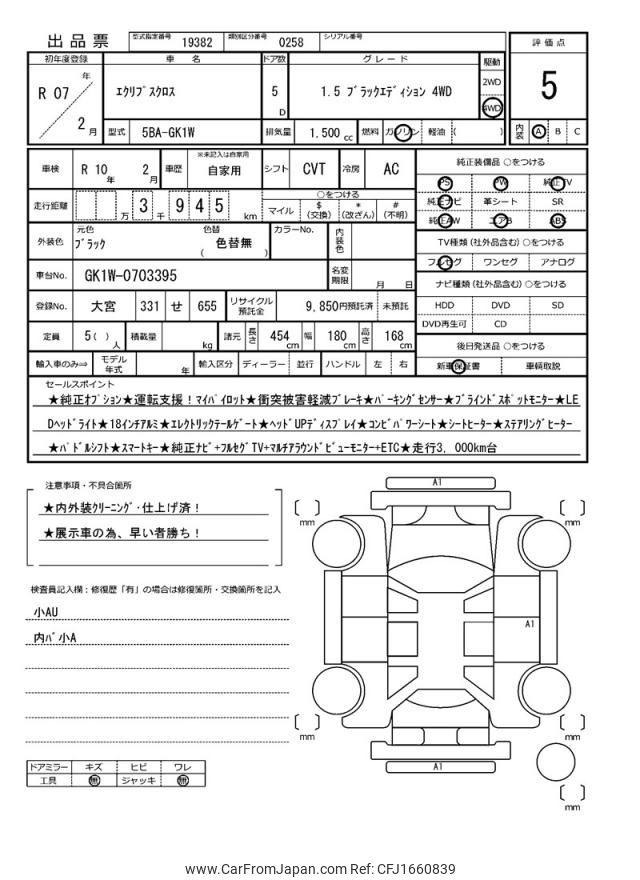 出品票
型式指定番号 19382 類別区分番号 0258 シリアル番号
初年度登録 車名 ドア数 グレード 駆動 評価点
R 07 年 2 月 エクリプスクロス 5 D 1.5 ブラックエディション 4WD 2WD 4WD 5
型式 5BA-GK1W 排気量 1,500 cc 燃料 ガソリン 軽油 ( ) 内装 A B C
車検 R 10 年 2 月 車歴 ※未記入は自家用 自家用 シフト CVT 冷房 AC 純正装備品 ○をつける
PS PW 純正TV
走行距離 万 3 千 9 4 5 km ○をつける 純正ナビ 革シート SR
マイル $ (交換) * (改ざん) # (不明) 純正AW エアB ABS
外装色 元色 ブラック 色替 ( 色替無 ) カラーNo. 内装色 TV種類 (社外品含む) ○をつける
フルセグ ワンセグ アナログ
車台No. GK1W-0703395 名変期限 月 日 ナビ種類 (社外品含む) ○をつける
登録No. 大宮 331 せ 655 リサイクル預託金 9,850円預託済 未預託 HDD DVD SD
DVD再生可 CD
定員 5( ) 人 積載量 kg 諸元 長さ 454 cm 幅 180 cm 高さ 168 cm 後日発送品 ○をつける
輸入車のみ⇒ モデル年式 年 輸入区分 ディーラー 並行 ハンドル 左 右 新車保証書 車輌取説
セールスポイント
★純正オプション★運転支援！マイパイロット★衝突被害軽減ブレーキ★パーキングセンサー★ブラインドスポットモニター★LE
Dヘッドライト★18インチアルミ★エレクトリックテールゲート★ヘッドUPディスプレイ★コンビパワーシート★シートヒーター★ステアリングヒーター
★パドルシフト★スマートキー★純正ナビ+フルセグTV+マルチアラウンドビューモニター+ETC★走行3,000km台
注意事項・不具合箇所
★内外装クリーニング・仕上げ済！
★展示車の為、早い者勝ち！
検査員記入欄：修復歴「有」の場合は修復箇所・交換箇所を記入
小AU
内バ小A
ドアミラー キズ ヒビ ワレ
工具 無 ジャッキ 無
A1
mm mm
A1
mm mm
A1
mm
www.CarFromJapan.com Ref: CFJ1660839